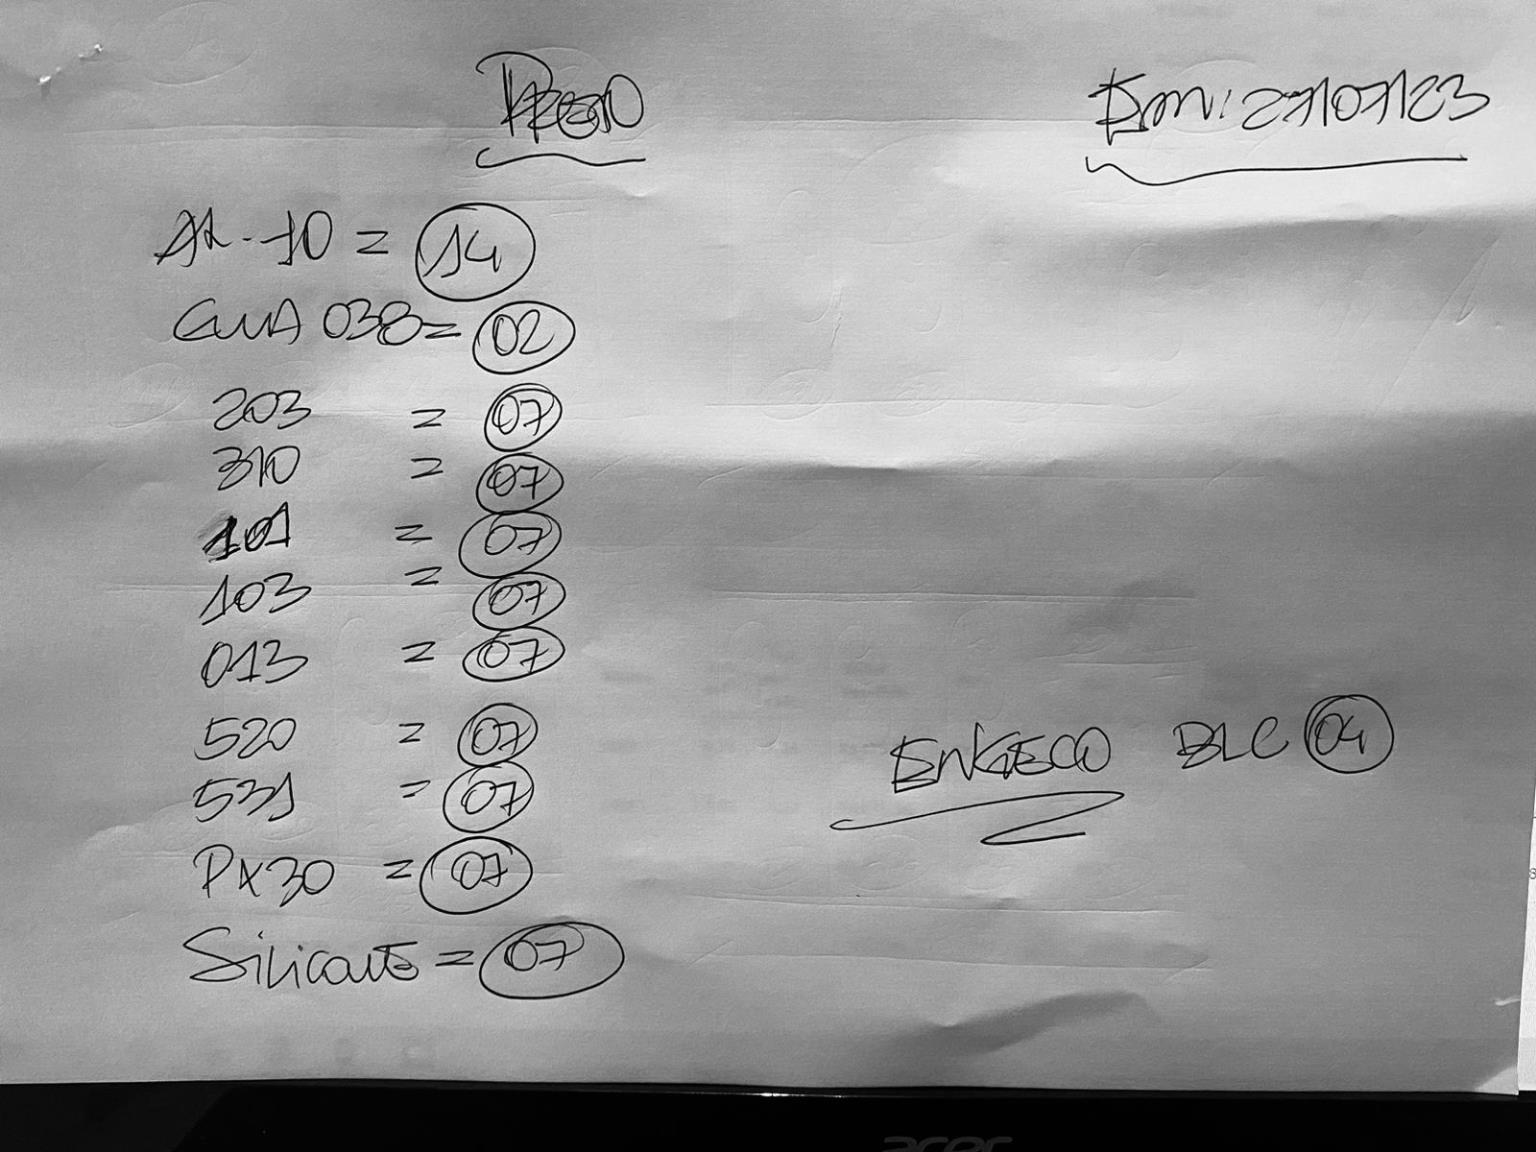 PRETO
Em: 27/07/23
AL-10 = 14
GUIA 038 = 02
203 = 07
310 = 07
101 = 07
103 = 07
013 = 07
520 = 07
531 = 07
PX30 = 07
ENGECO BLC 04
Silicone = 07
acer